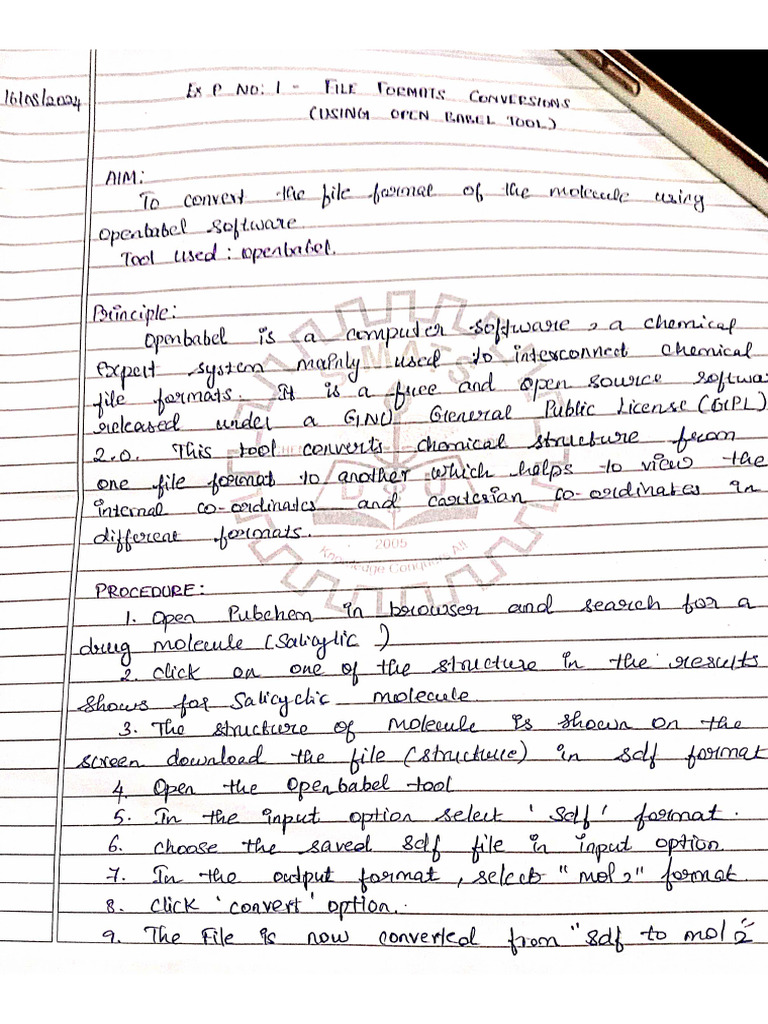 16/08/2024
EXP NO: 1 - FILE FORMATS CONVERSIONS
(USING OPEN BABEL TOOL)
AIM:
To convert the file format of the molecule using
openbabel software.
Tool used : openbabel.
Principle:
Openbabel is a computer software, a chemical
expert system mainly used to interconnect chemical
file formats. It is a free and open source softwa
released under a GNU General Public License (GPL)
2.0. This tool converts chemical structure from
one file format to another which helps to view the
internal co-ordinates and cartesian co-ordinates in
different formats.
2005
Knowledge Conquers All
PROCEDURE:
1. Open Pubchem in browser and search for a
drug molecule (Salicylic )
2. Click on one of the structure in the results
shows for Salicyclic molecule
3. The structure of molecule is shown on the
screen download the file (structure) in sdf format
4. Open the Openbabel tool
5. In the input option select 'Sdf' format.
6. Choose the saved sdf file in input option
7. In the output format, select "mol2" format
8. Click 'convert' option.
9. The File is now converted from "sdf to mol2"